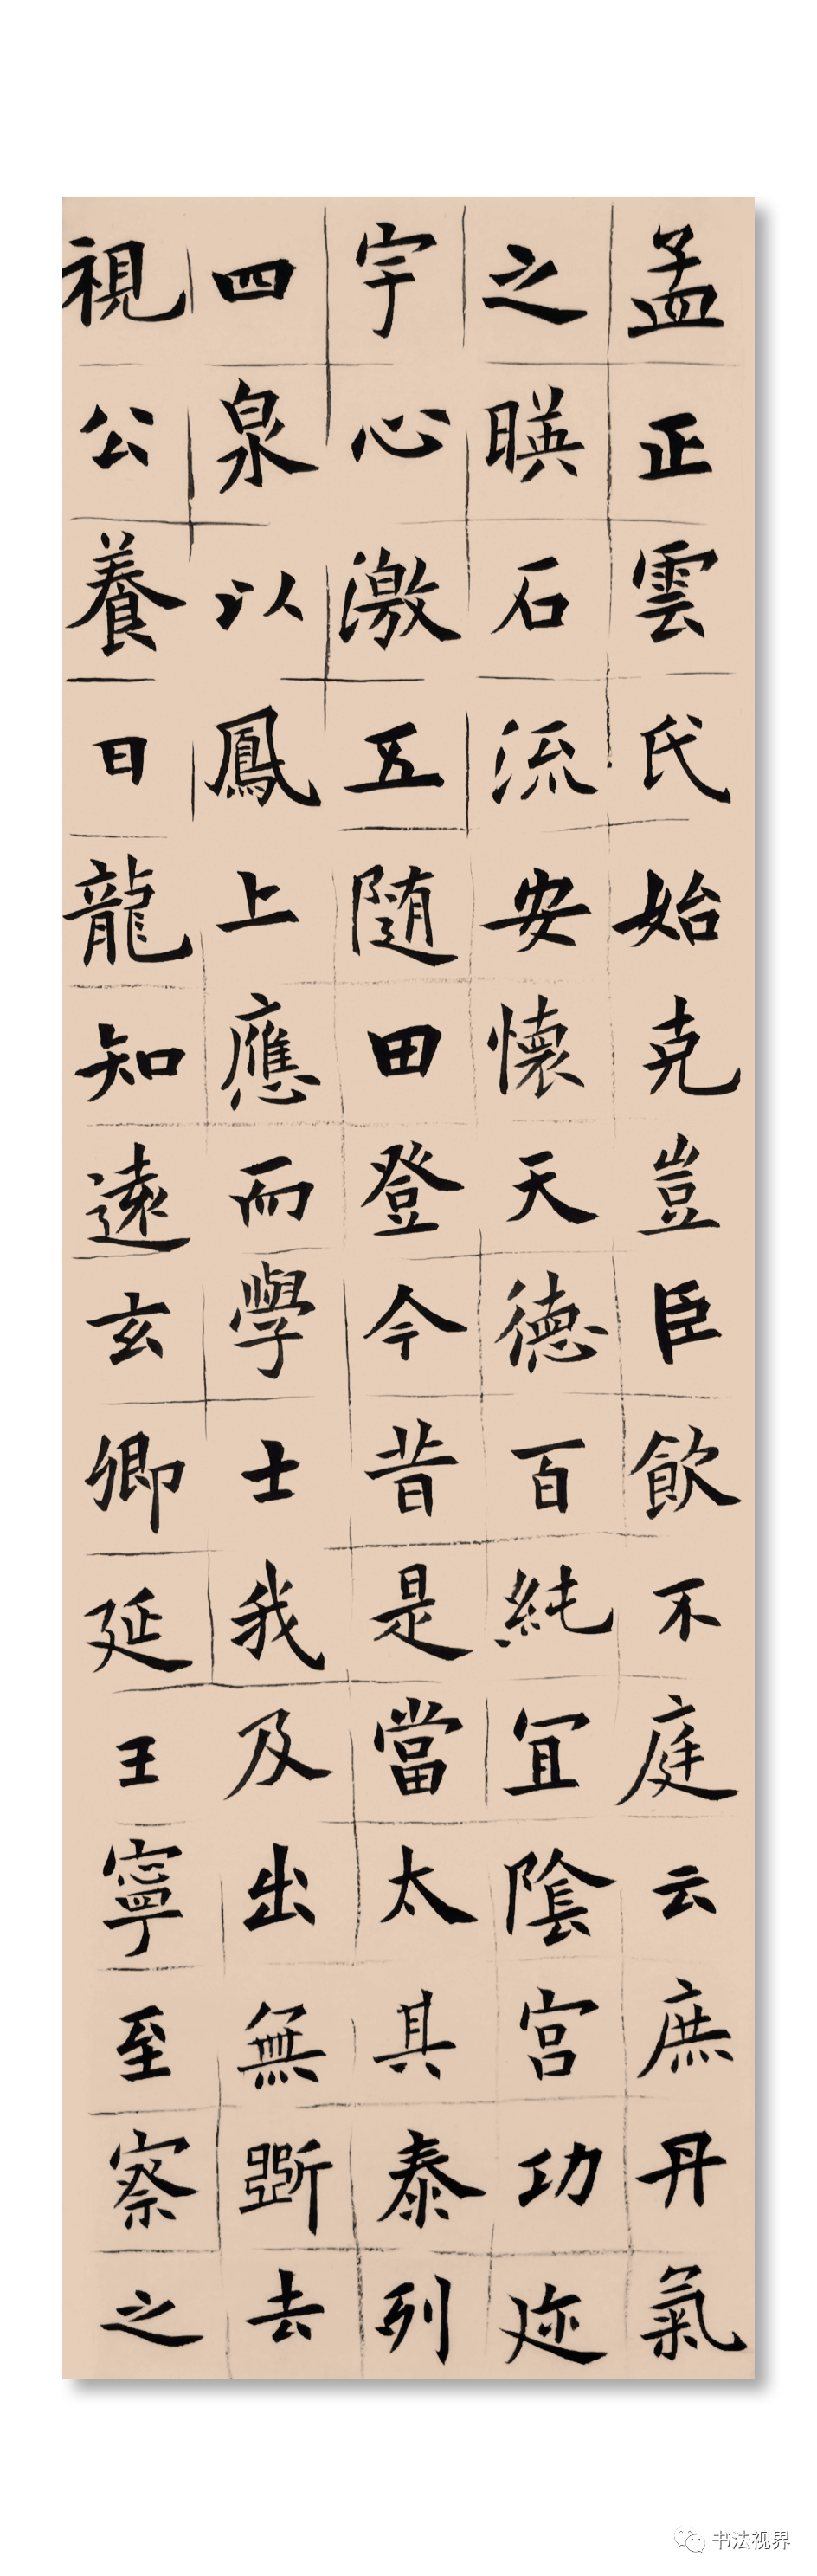 孟正雲氏始克豈臣飲不庭云庶丹氣
之暎石流安懷天德百純宜陰宮功迹
宇心激五隨田登今昔是當太其泰列
四泉以鳳上應而學士我及出無斷去
視公養日龍知遠玄卿延王寧至察之
书法视界